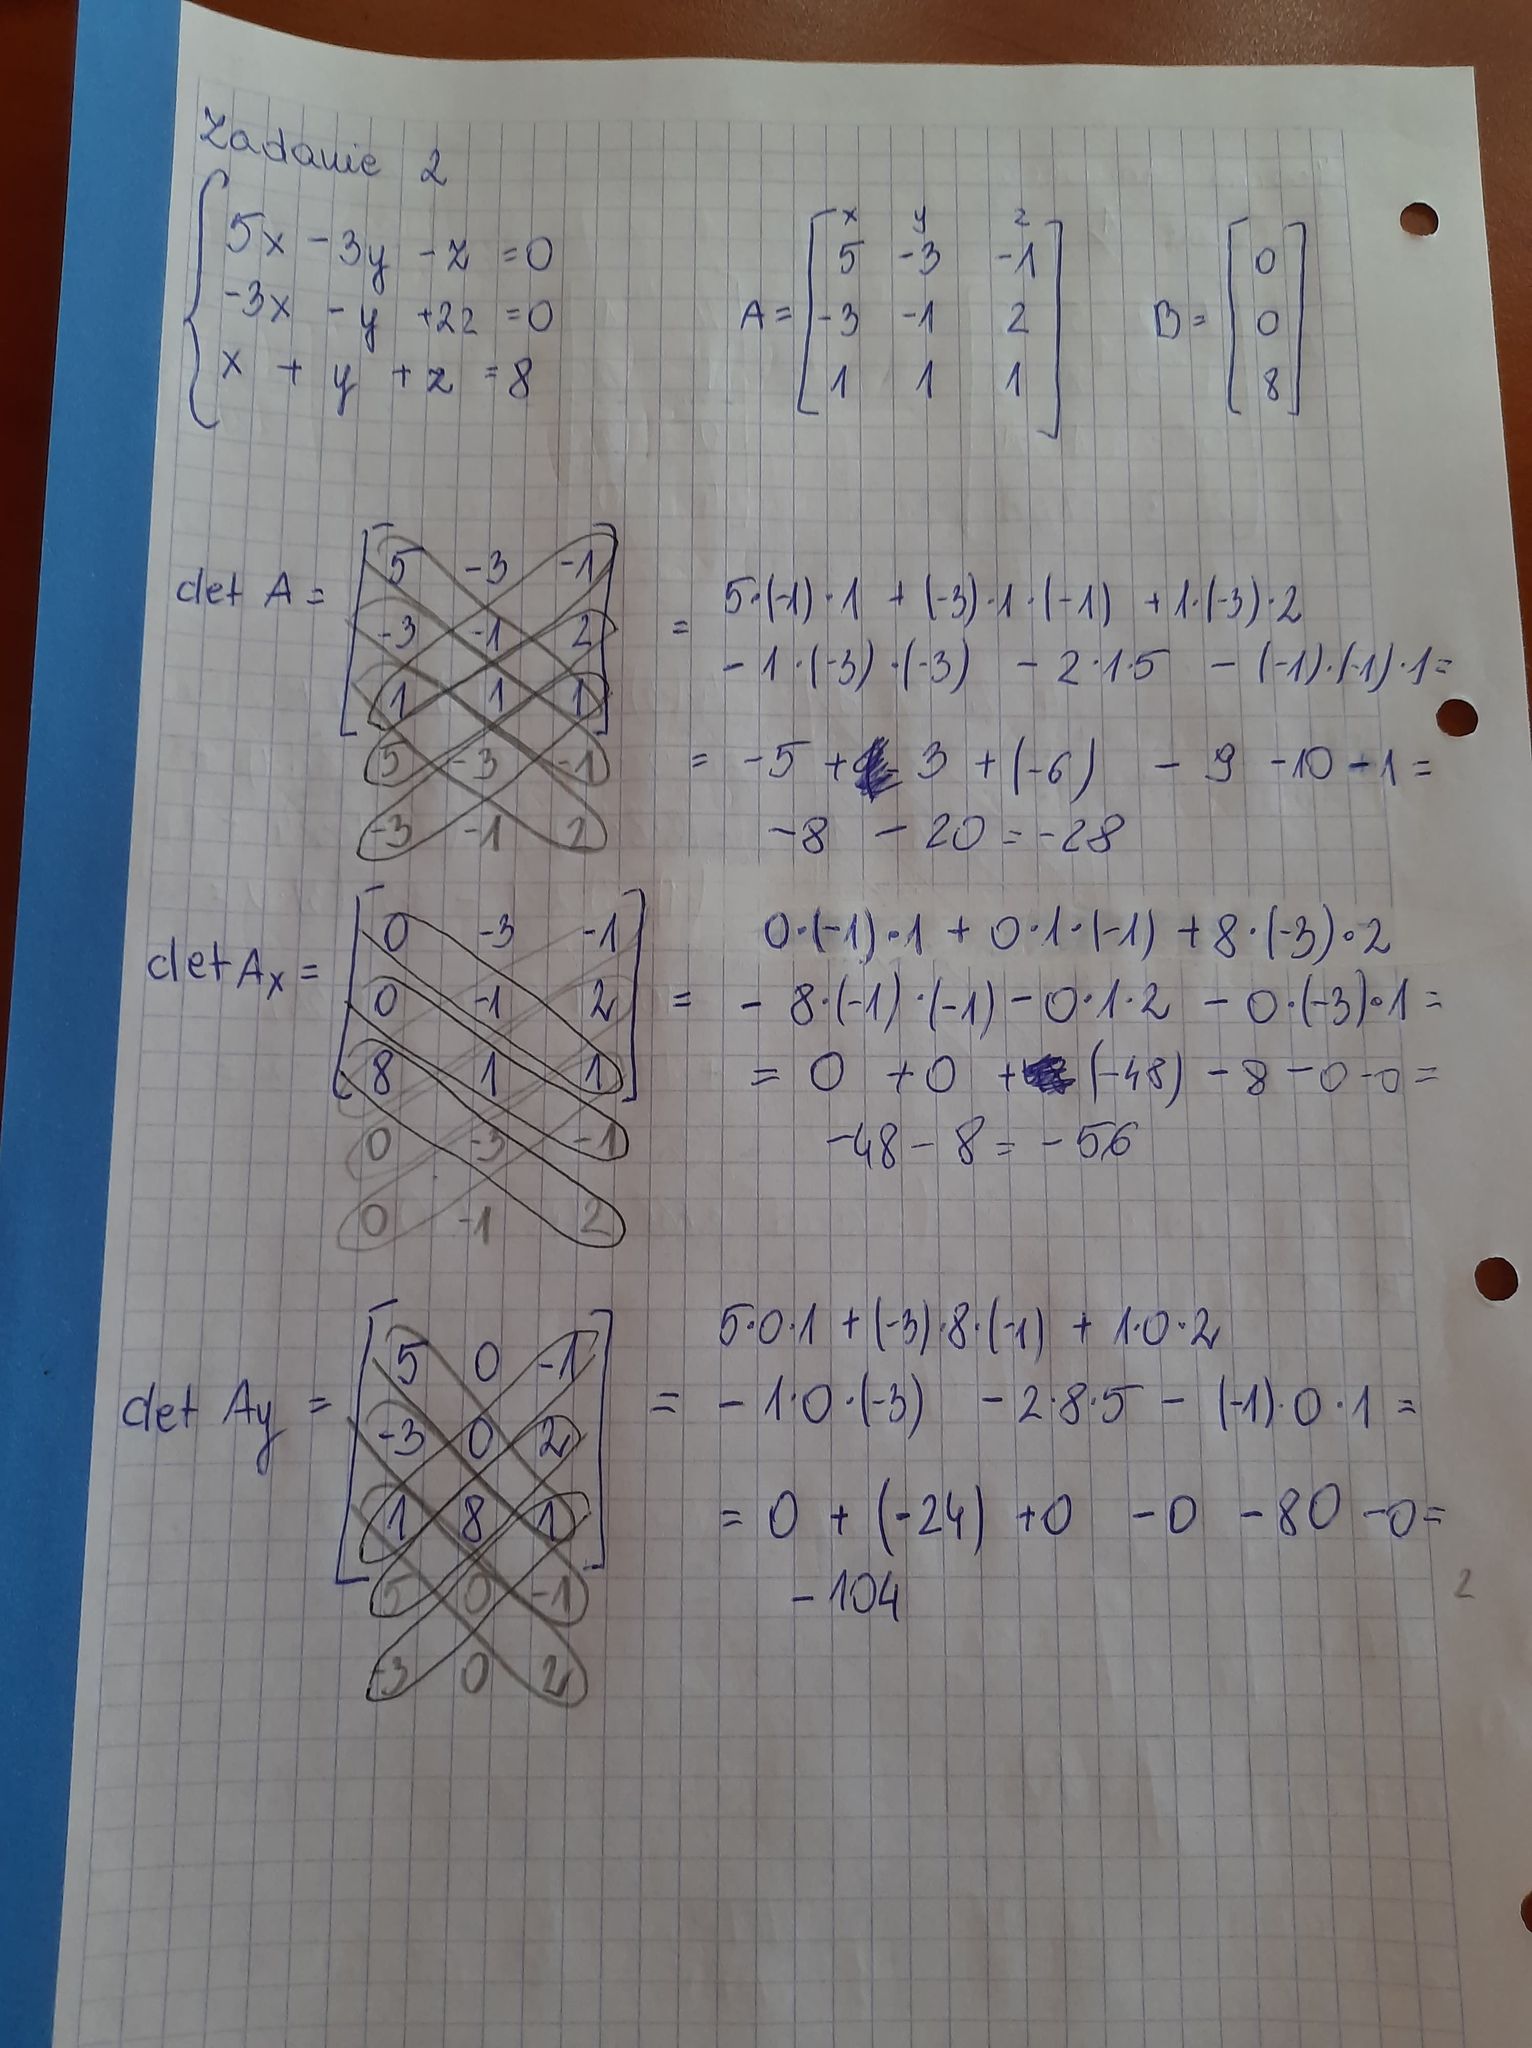 Zadanie 2
5x - 3y - z = 0
-3x - y + 2z = 0
x + y + z = 8
x y z
A = [ 5 -3 -1
-3 -1 2
1 1 1 ]
B = [ 0
0
8 ]
det A = [ 5 -3 -1
-3 -1 2
1 1 1 ]
5 -3 -1
-3 -1 2
= 5·(-1)·1 + (-3)·1·(-1) + 1·(-3)·2
- 1·(-3)·(-3) - 2·1·5 - (-1)·(-1)·1 =
= -5 + 3 + (-6) - 9 - 10 - 1 =
-8 - 20 = -28
det Ax = [ 0 -3 -1
0 -1 2
8 1 1 ]
0 -3 -1
0 -1 2
= 0·(-1)·1 + 0·1·(-1) + 8·(-3)·2
- 8·(-1)·(-1) - 0·1·2 - 0·(-3)·1 =
= 0 + 0 + (-48) - 8 - 0 - 0 =
-48 - 8 = -56
det Ay = [ 5 0 -1
-3 0 2
1 8 1 ]
5 0 -1
-3 0 2
= 5·0·1 + (-3)·8·(-1) + 1·0·2
- 1·0·(-3) - 2·8·5 - (-1)·0·1 =
= 0 + (-24) + 0 - 0 - 80 - 0 =
-104
2